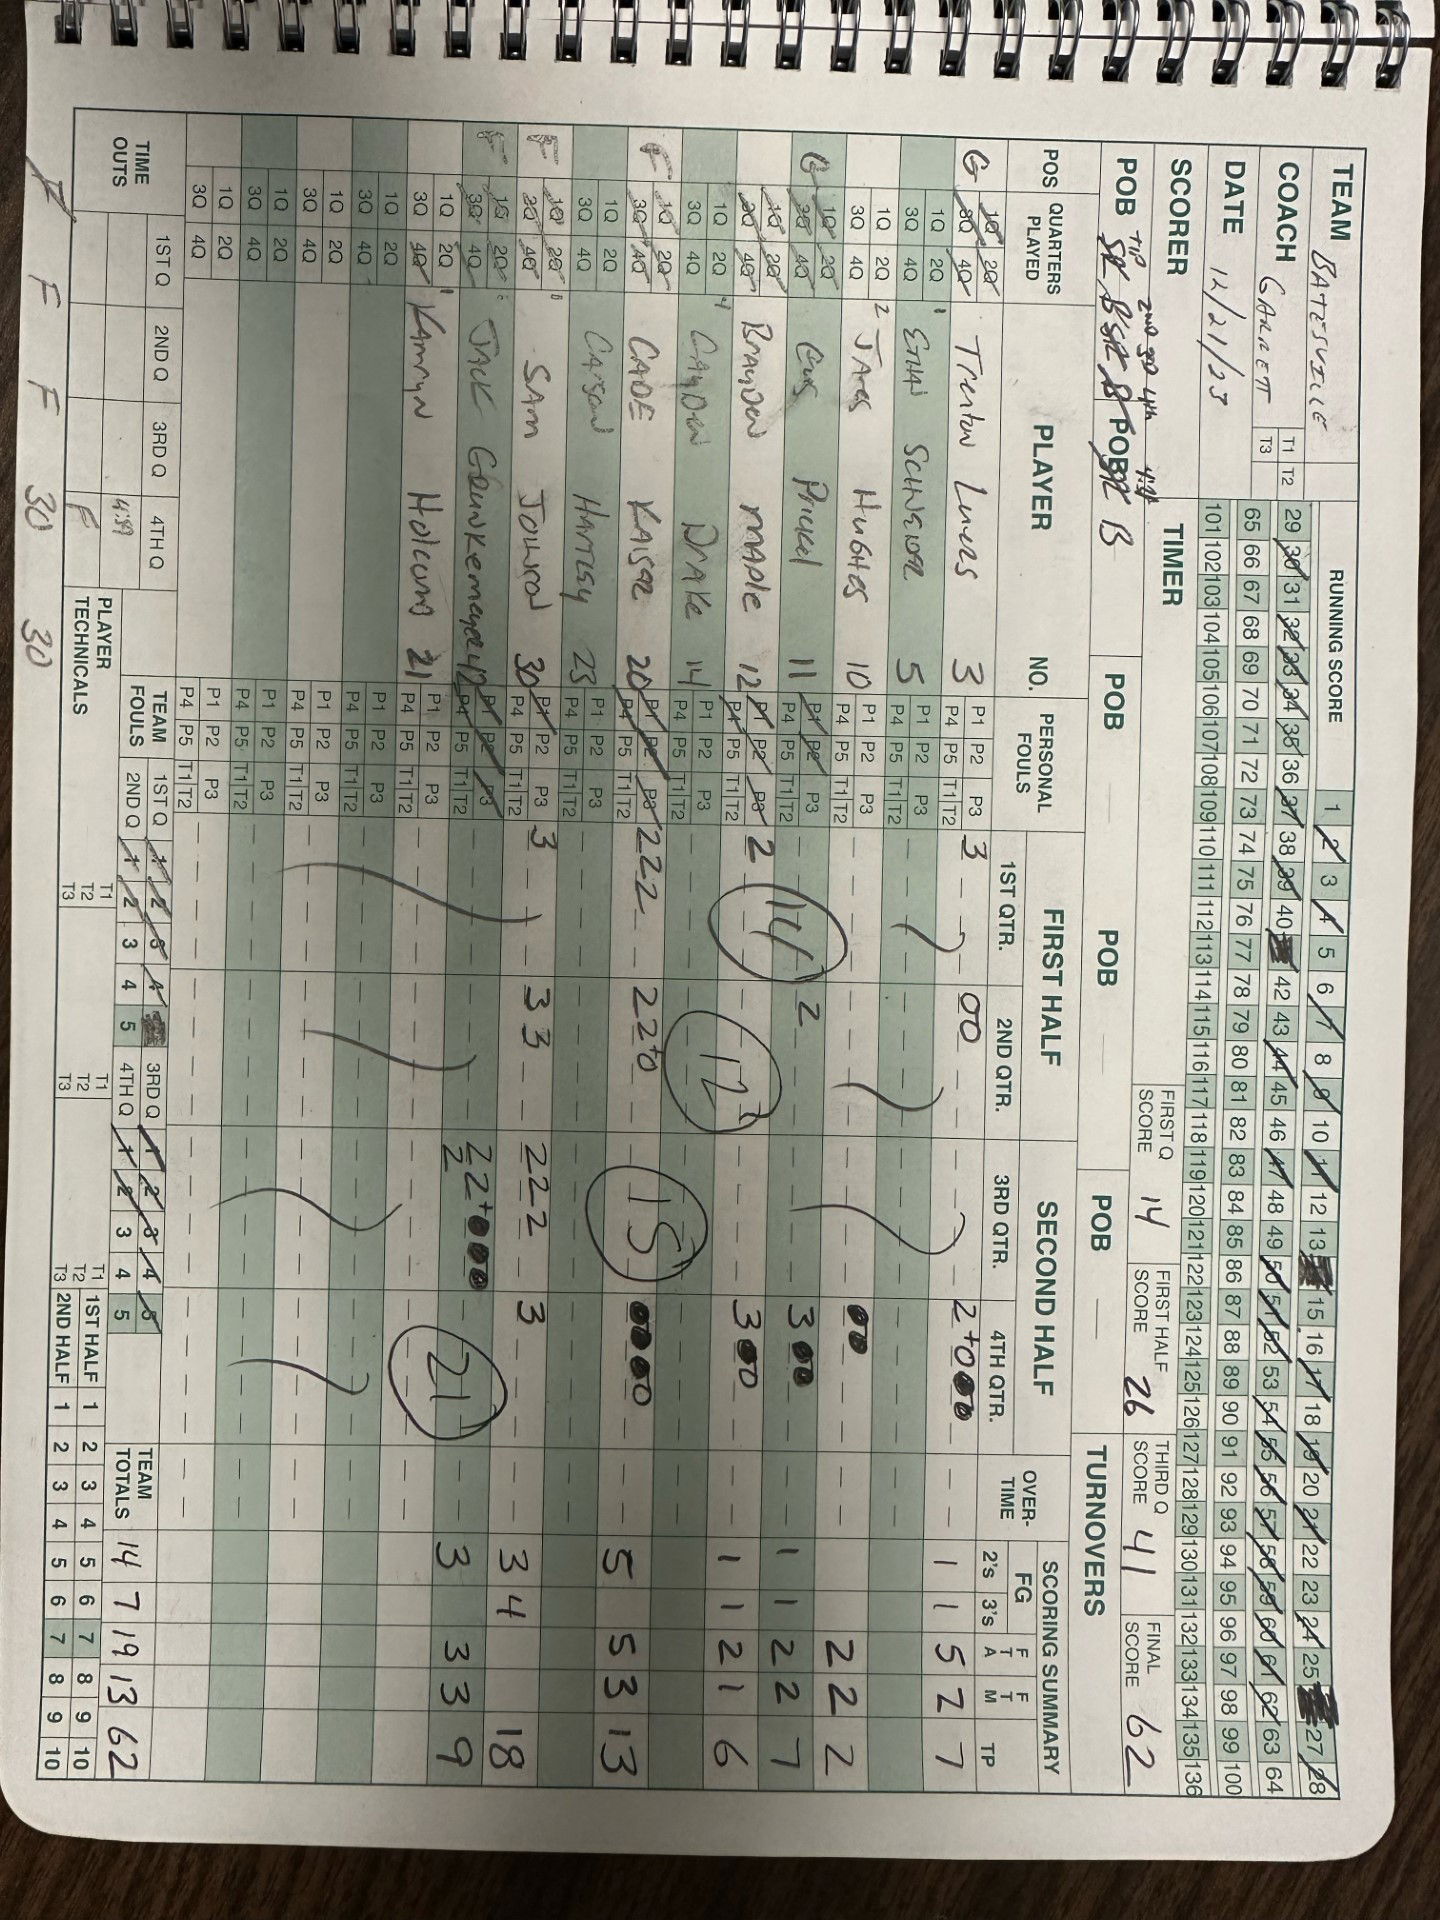 TEAM BATESVILLE RUNNING SCORE 1 2 3 4 5 6 7 8 9 10 11 12 13 14 15 16 17 18 19 20 21 22 23 24 25 26 27 28
COACH GARRETT T1 T2 T3 29 30 31 32 33 34 35 36 37 38 39 40 42 43 44 45 46 47 48 49 50 51 52 53 54 55 56 57 58 59 60 61 62 63 64
DATE 12/21/23 65 66 67 68 69 70 71 72 73 74 75 76 77 78 79 80 81 82 83 84 85 86 87 88 89 90 91 92 93 94 95 96 97 98 99 100
101 102 103 104 105 106 107 108 109 110 111 112 113 114 115 116 117 118 119 120 121 122 123 124 125 126 127 128 129 130 131 132 133 134 135 136
SCORER TIMER FIRST Q SCORE 14 FIRST HALF SCORE 26 THIRD Q SCORE 41 FINAL SCORE 62
TIP 2nd 3rd 4th
POB POB B POB POB POB TURNOVERS
POS QUARTERS PLAYED PLAYER NO. PERSONAL FOULS FIRST HALF SECOND HALF OVER-TIME SCORING SUMMARY
1ST QTR. 2ND QTR. 3RD QTR. 4TH QTR. FG 2's 3's FT A FT M TP
G 1Q 2Q 3Q 4Q Trenton Luers 3 P1 P2 P3 P4 P5 T1 T2 3 00 2+0 1 1 5 2 7
1Q 2Q 3Q 4Q 5 P1 P2 P3 P4 P5 T1 T2
1Q 2Q 3Q 4Q Hughes 10 P1 P2 P3 P4 P5 T1 T2 2 2 2
G 1Q 2Q 3Q 4Q Gus Prickel 11 P1 P2 P3 P4 P5 T1 T2 2 3 1 1 2 2 7
1Q 2Q 3Q 4Q Brayden MAPLE 12 P1 P2 P3 P4 P5 T1 T2 2 14 3 1 1 2 1 6
1Q 2Q 3Q 4Q Cayden DRAKE 14 P1 P2 P3 P4 P5 T1 T2 12
F 1Q 2Q 3Q 4Q CADE KAISER 20 P1 P2 P3 P4 P5 T1 T2 2 2 2 2 2+0 15 5 5 3 13
1Q 2Q 3Q 4Q Carson HARTSY 23 P1 P2 P3 P4 P5 T1 T2
F 1Q 2Q 3Q 4Q SAM 30 P1 P2 P3 P4 P5 T1 T2 3 3 3 2 2 2 3 3 4 18
F 1Q 2Q 3Q 4Q JACK Grunkemeyer 42 P1 P2 P3 P4 P5 T1 T2 2 2+ 2 21 3 3 3 9
1Q 2Q 3Q 4Q Kamryn Holcomb 21 P1 P2 P3 P4 P5 T1 T2
1Q 2Q 3Q 4Q P1 P2 P3 P4 P5 T1 T2
1Q 2Q 3Q 4Q P1 P2 P3 P4 P5 T1 T2
1Q 2Q 3Q 4Q P1 P2 P3 P4 P5 T1 T2
1Q 2Q 3Q 4Q P1 P2 P3 P4 P5 T1 T2
TIME OUTS 1ST Q 2ND Q 3RD Q 4TH Q TEAM FOULS 1ST Q 1 2 3 4 3RD Q 1 2 3 4 5 TEAM TOTALS 14 7 19 13 62
F 2ND Q 1 2 3 4 5 4TH Q 1 2 3 4 5
PLAYER TECHNICALS T1 T2 T3 T1 T2 T3 T1 T2 T3 1ST HALF 1 2 3 4 5 6 7 8 9 10
2ND HALF 1 2 3 4 5 6 7 8 9 10
F F F 30 30